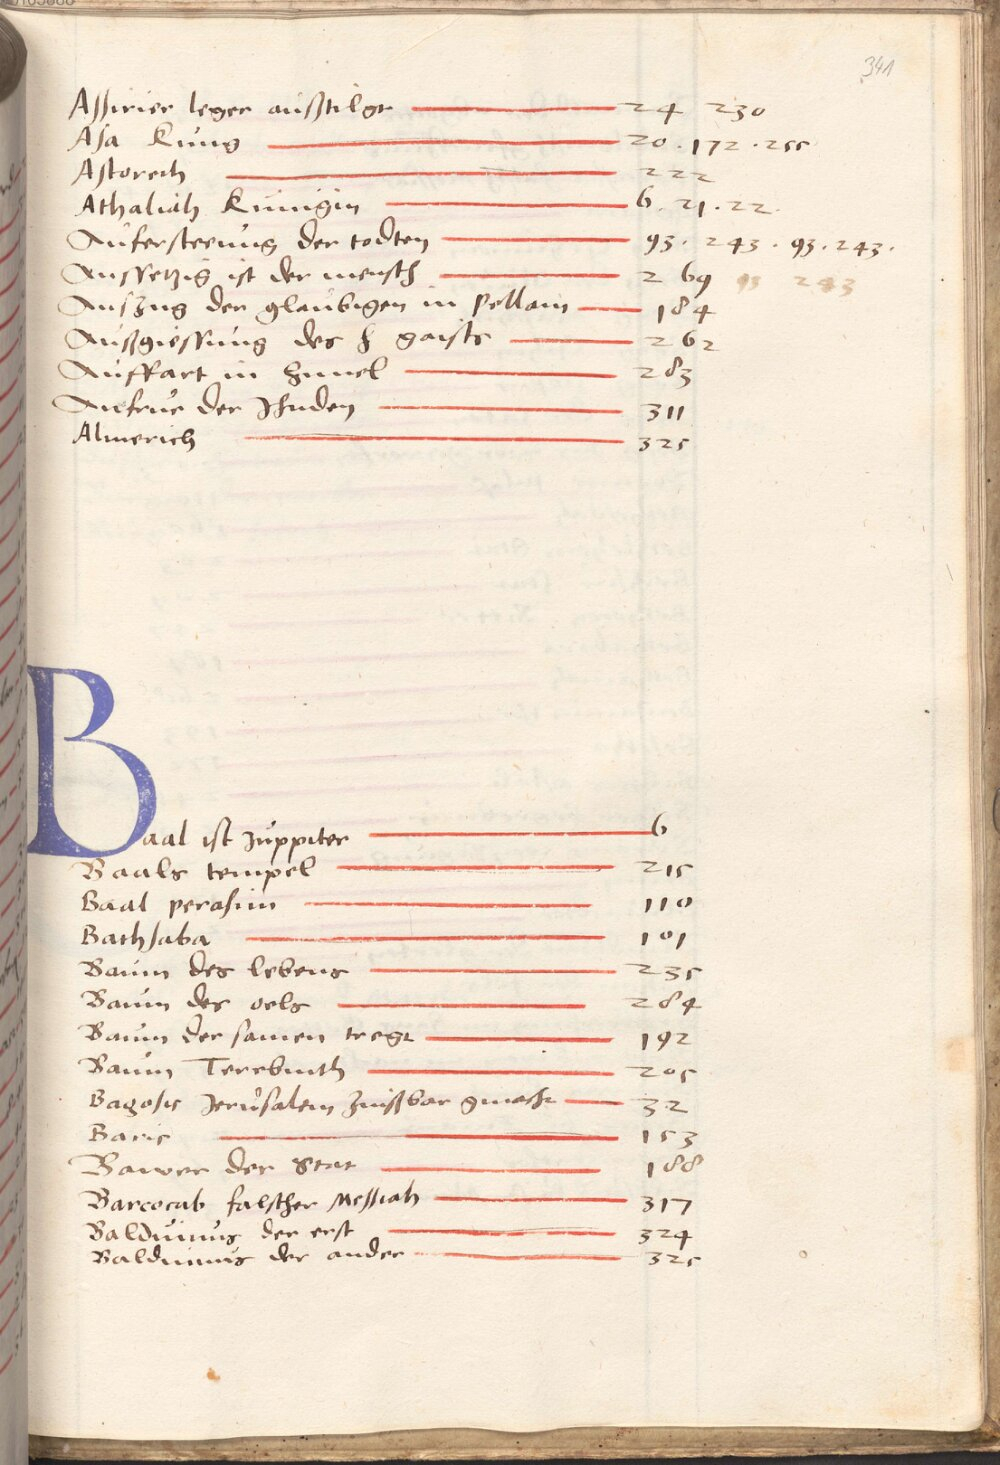 341
Assirier leger ausstilgt 24 230
Asa Kunig 20 . 172 . 255
Astoreth 222
Athaliah Kunigin 6 . 21 . 22
Aufersteeung der todten 93 . 243 . 93 . 243 .
Aussetzig ist der mensch 269 93 243
Auszug der glaubigen in Pellam 184
Aussgiessung des h gaists 262
Auffart in himel 283
Aufrur der Jhuden 311
Almerich 325
Baal ist Juppiter 6
Baals tempel 215
Baal perasim 110
Bathsaba 101
Baum des lebens 235
Baum des oels 284
Baum der samen tregt 192
Baum Terebinth 205
Bagosis Jerusalem zinssbar gmacht 32
Baris 153
Bawer der Stat 188
Barcocab falscher Messiah 317
Balduinus der erst 324
Balduinus der ander 325